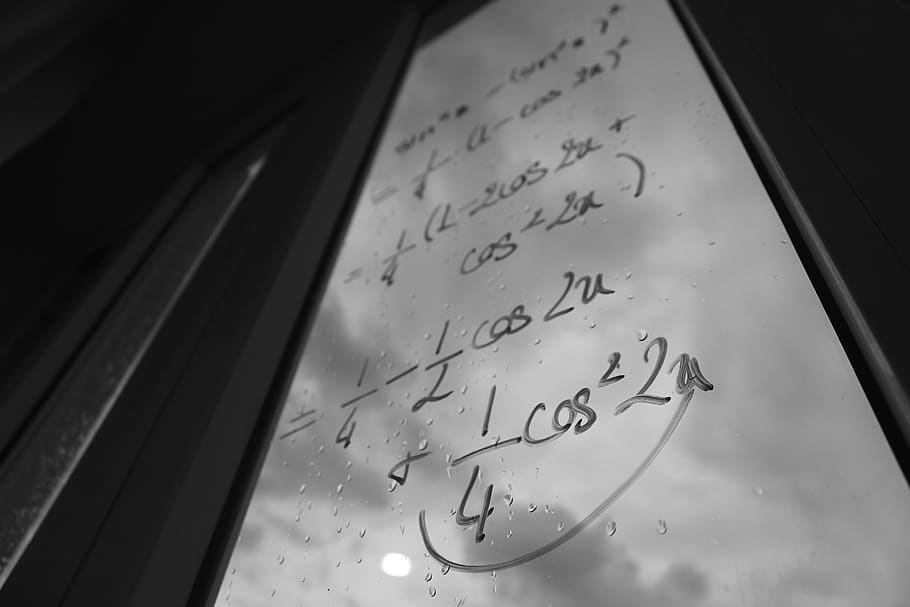 sin⁴x = (sin²x)²
= 1/4 (1 - cos 2x)²
= 1/4 (1 - 2cos 2x +
cos² 2x)
= 1/4 - 1/2 cos 2x
+ 1/4 cos² 2x